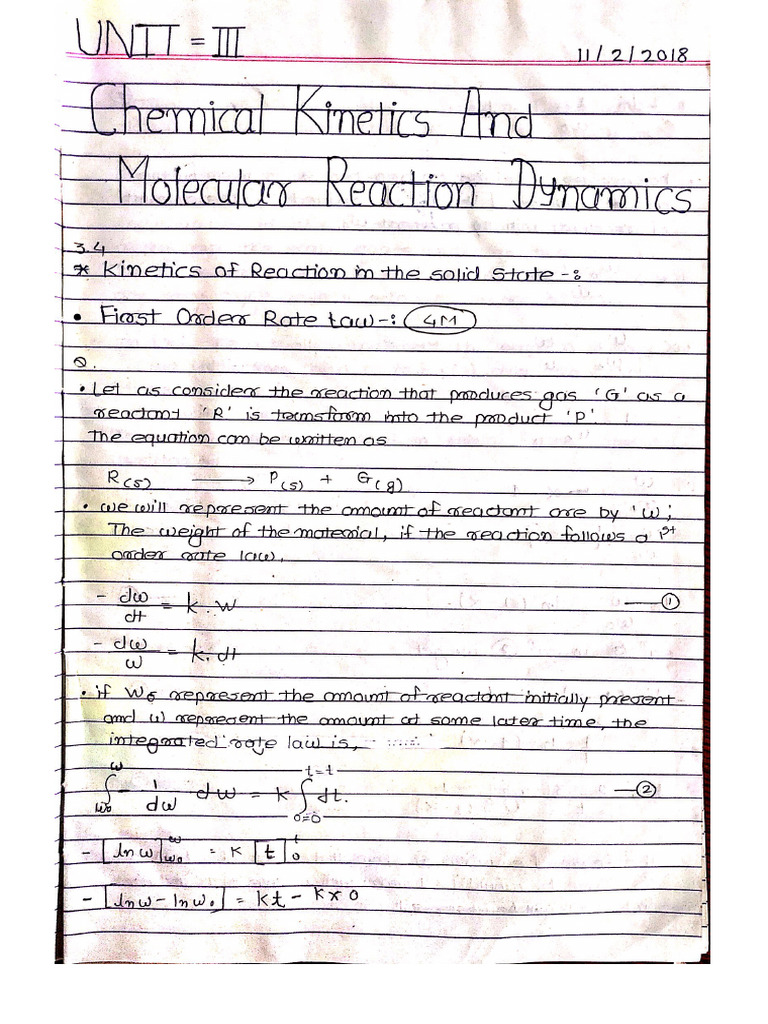 UNIT = III
11/2/2018
Chemical Kinetics And
Molecular Reaction Dynamics
3.4
* Kinetics of Reaction in the solid state -:
• First Order Rate Law -: 4M
Q.
• Let as consider the reaction that produces gas 'G' as a
reactant 'R' is transform into the product 'P'
The equation can be written as
R(s) ⟶ P(s) + G(g)
• we will represent the amount of reactant are by 'w;
The weight of the material, if the reaction follows a 1st
order rate law,
- dw/dt = k.w — ①
- dw/w = k.dt
• if W₀ represent the amount of reactant initially present
and w represent the amount at some later time, the
integrated rate law is,
∫_w₀^w - 1/dw dw = k ∫_0=0^t=t dt. — ②
- [ln w]_w₀^w = k [t]_0^t
- [ln w - ln w₀] = kt - k x 0